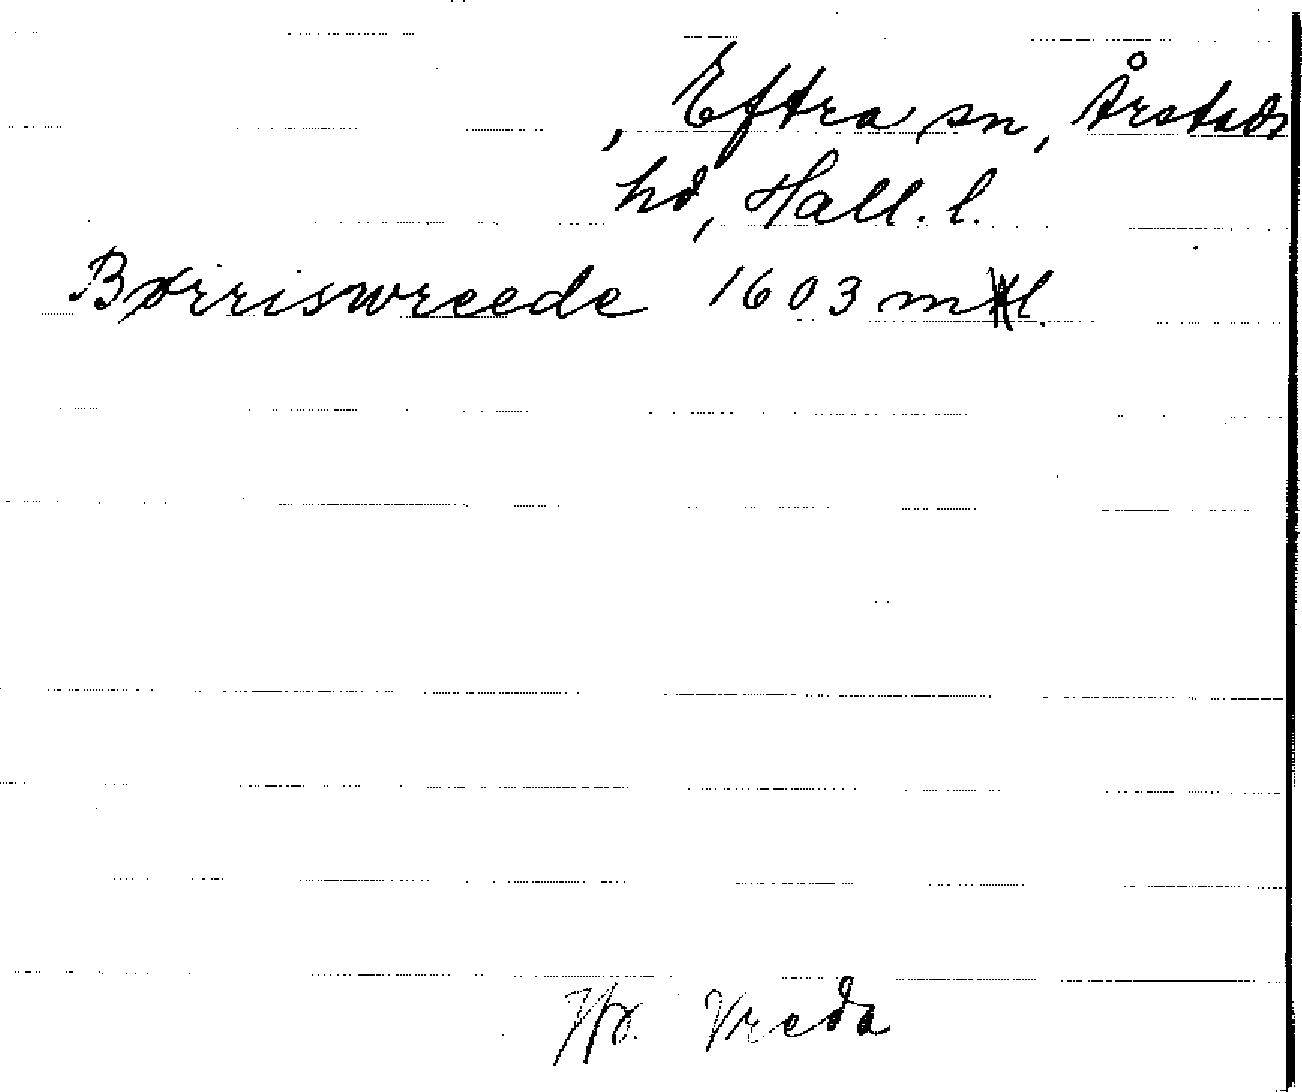 , Eftra sn, Årstads
hd, Hall. l.
Børriswreede 1603 ml.
Vreda